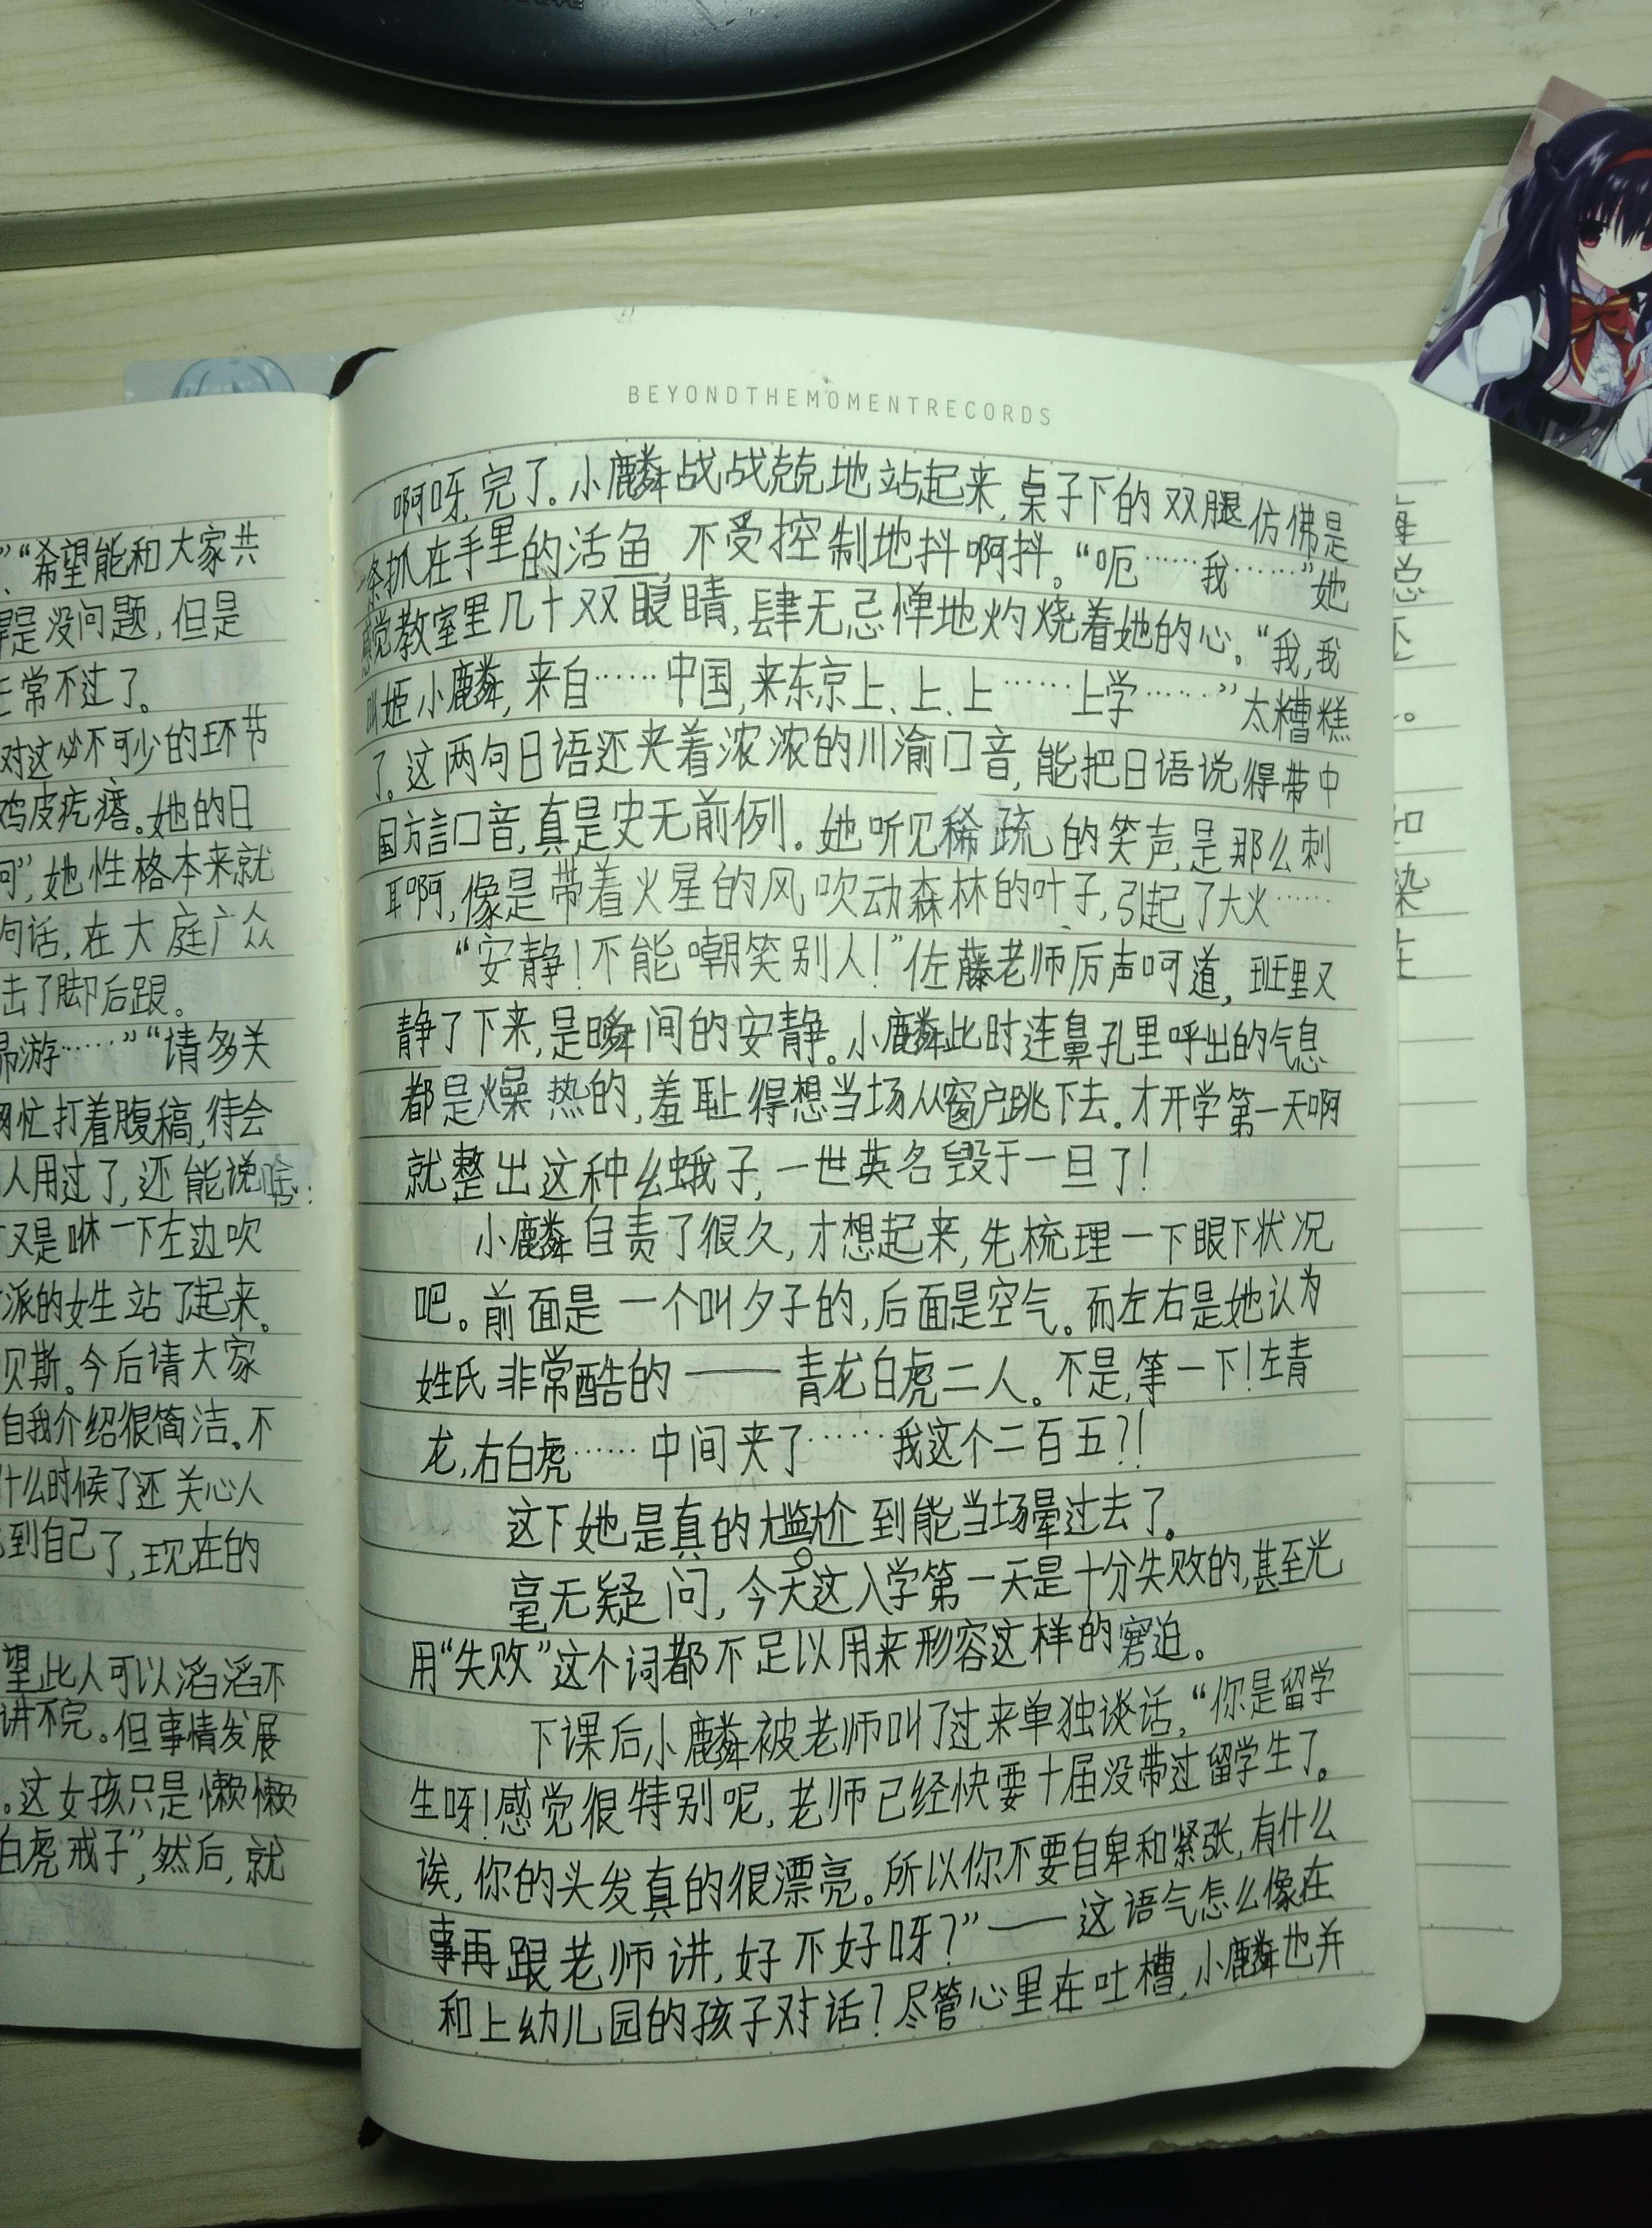 ”“希望能和大家共
是没问题,但是
正常不过了。
对这必不可少的环节
鸡皮疙瘩。她的日
”,她性格本来就
句话,在大庭广众
击了脚后跟。
游……”“请多关
忙打着腹稿,待会
人用过了,还能说啥:
又是咻一下左边吹
派的女生站了起来。
贝斯。今后请大家
自我介绍很简洁。不
什么时候了还关心人
到自己了,现在的
望此人可以滔滔不
讲不完。但事情发展
。这女孩只是懒懒
白虎戒子”,然后,就
BEYONDTHEMOMENTRECORDS
啊呀,完了。小麟战战兢兢地站起来,桌子下的双腿仿佛是
一条抓在手里的活鱼,不受控制地抖啊抖。“呃……我……”她
感觉教室里几十双眼睛,肆无忌惮地灼烧着她的心。“我,我
叫姬小麟,来自……中国,来东京上、上、上……上学……”太糟糕
了。这两句日语还夹着浓浓的川渝口音,能把日语说得带中
国方言口音,真是史无前例。她听见稀疏的笑声,是那么刺
耳啊,像是带着火星的风吹动森林的叶子,引起了大火……
“安静!不能嘲笑别人!”佐藤老师厉声呵道,班里又
静了下来,是瞬间的安静。小麟此时连鼻孔里呼出的气息
都是燥热的,羞耻得想当场从窗户跳下去。才开学第一天啊
就整出这种幺蛾子,一世英名毁于一旦了!
小麟自责了很久,才想起来,先梳理一下眼下状况
吧。前面是一个叫夕子的,后面是空气。而左右是她认为
姓氏非常酷的——青龙白虎二人。不是,等一下!左青
龙,右白虎……中间夹了……我这个二百五?!
这下她是真的尴尬到能当场晕过去了。
毫无疑问,今天这入学第一天是十分失败的,甚至光
用“失败”这个词都不足以用来形容这样的窘迫。
下课后小麟被老师叫了过来单独谈话,“你是留学
生呀!感觉很特别呢,老师已经快要十届没带过留学生了。
诶,你的头发真的很漂亮。所以你不要自卑和紧张,有什么
事再跟老师讲,好不好呀?”——这语气怎么像在
和上幼儿园的孩子对话?尽管心里在吐槽,小麟也并
总
还
。
和
染
在